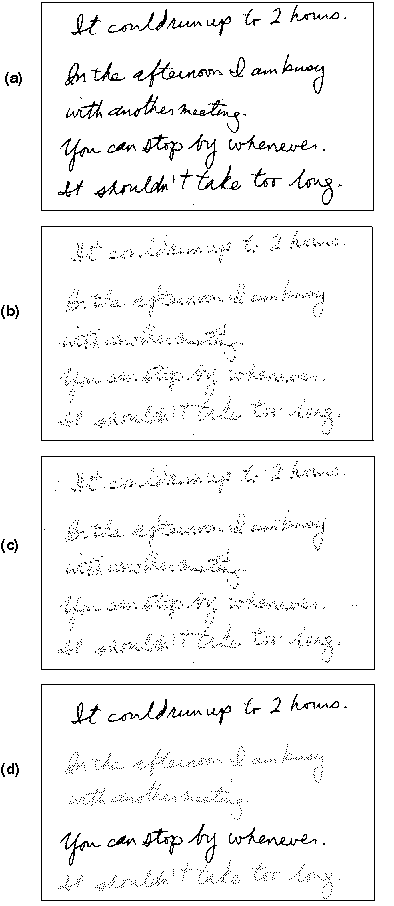 It could run up to 2 hours.
(a)
In the afternoon I am busy
with another meeting.
You can stop by whenever.
It shouldn't take too long.
It could run up to 2 hours.
(b)
In the afternoon I am busy
with another meeting.
You can stop by whenever.
It shouldn't take too long.
It could run up to 2 hours.
(c)
In the afternoon I am busy
with another meeting.
You can stop by whenever.
It shouldn't take too long.
It could run up to 2 hours.
(d)
In the afternoon I am busy
with another meeting.
You can stop by whenever.
It shouldn't take too long.